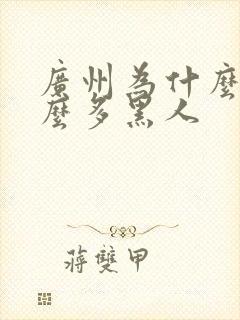 廣州為什麼
麼多黑人
蔣雙甲